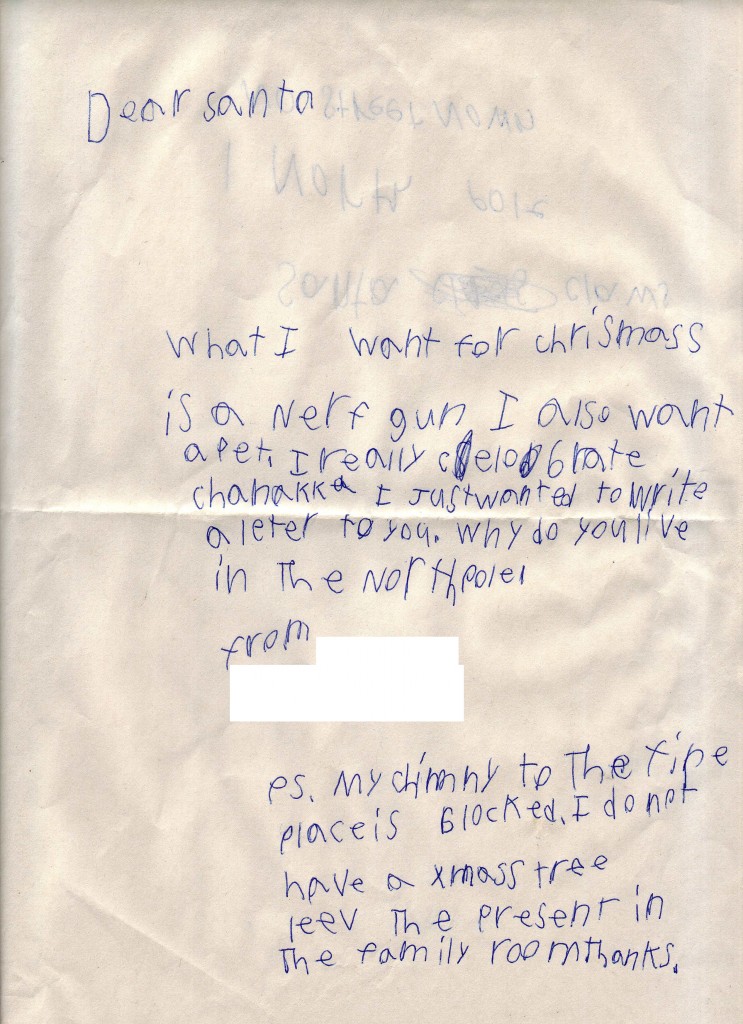 Dear santa
What I want for chrismass
is a Nerf gun I also want
a pet. I really celebrate
chanakka I Just wanted to write
a leter to you. why do you live
in The North pole
from
ps. My chimny to The fire
place is blocked. I do not
have a xmass tree
leev The present in
The family room thanks.